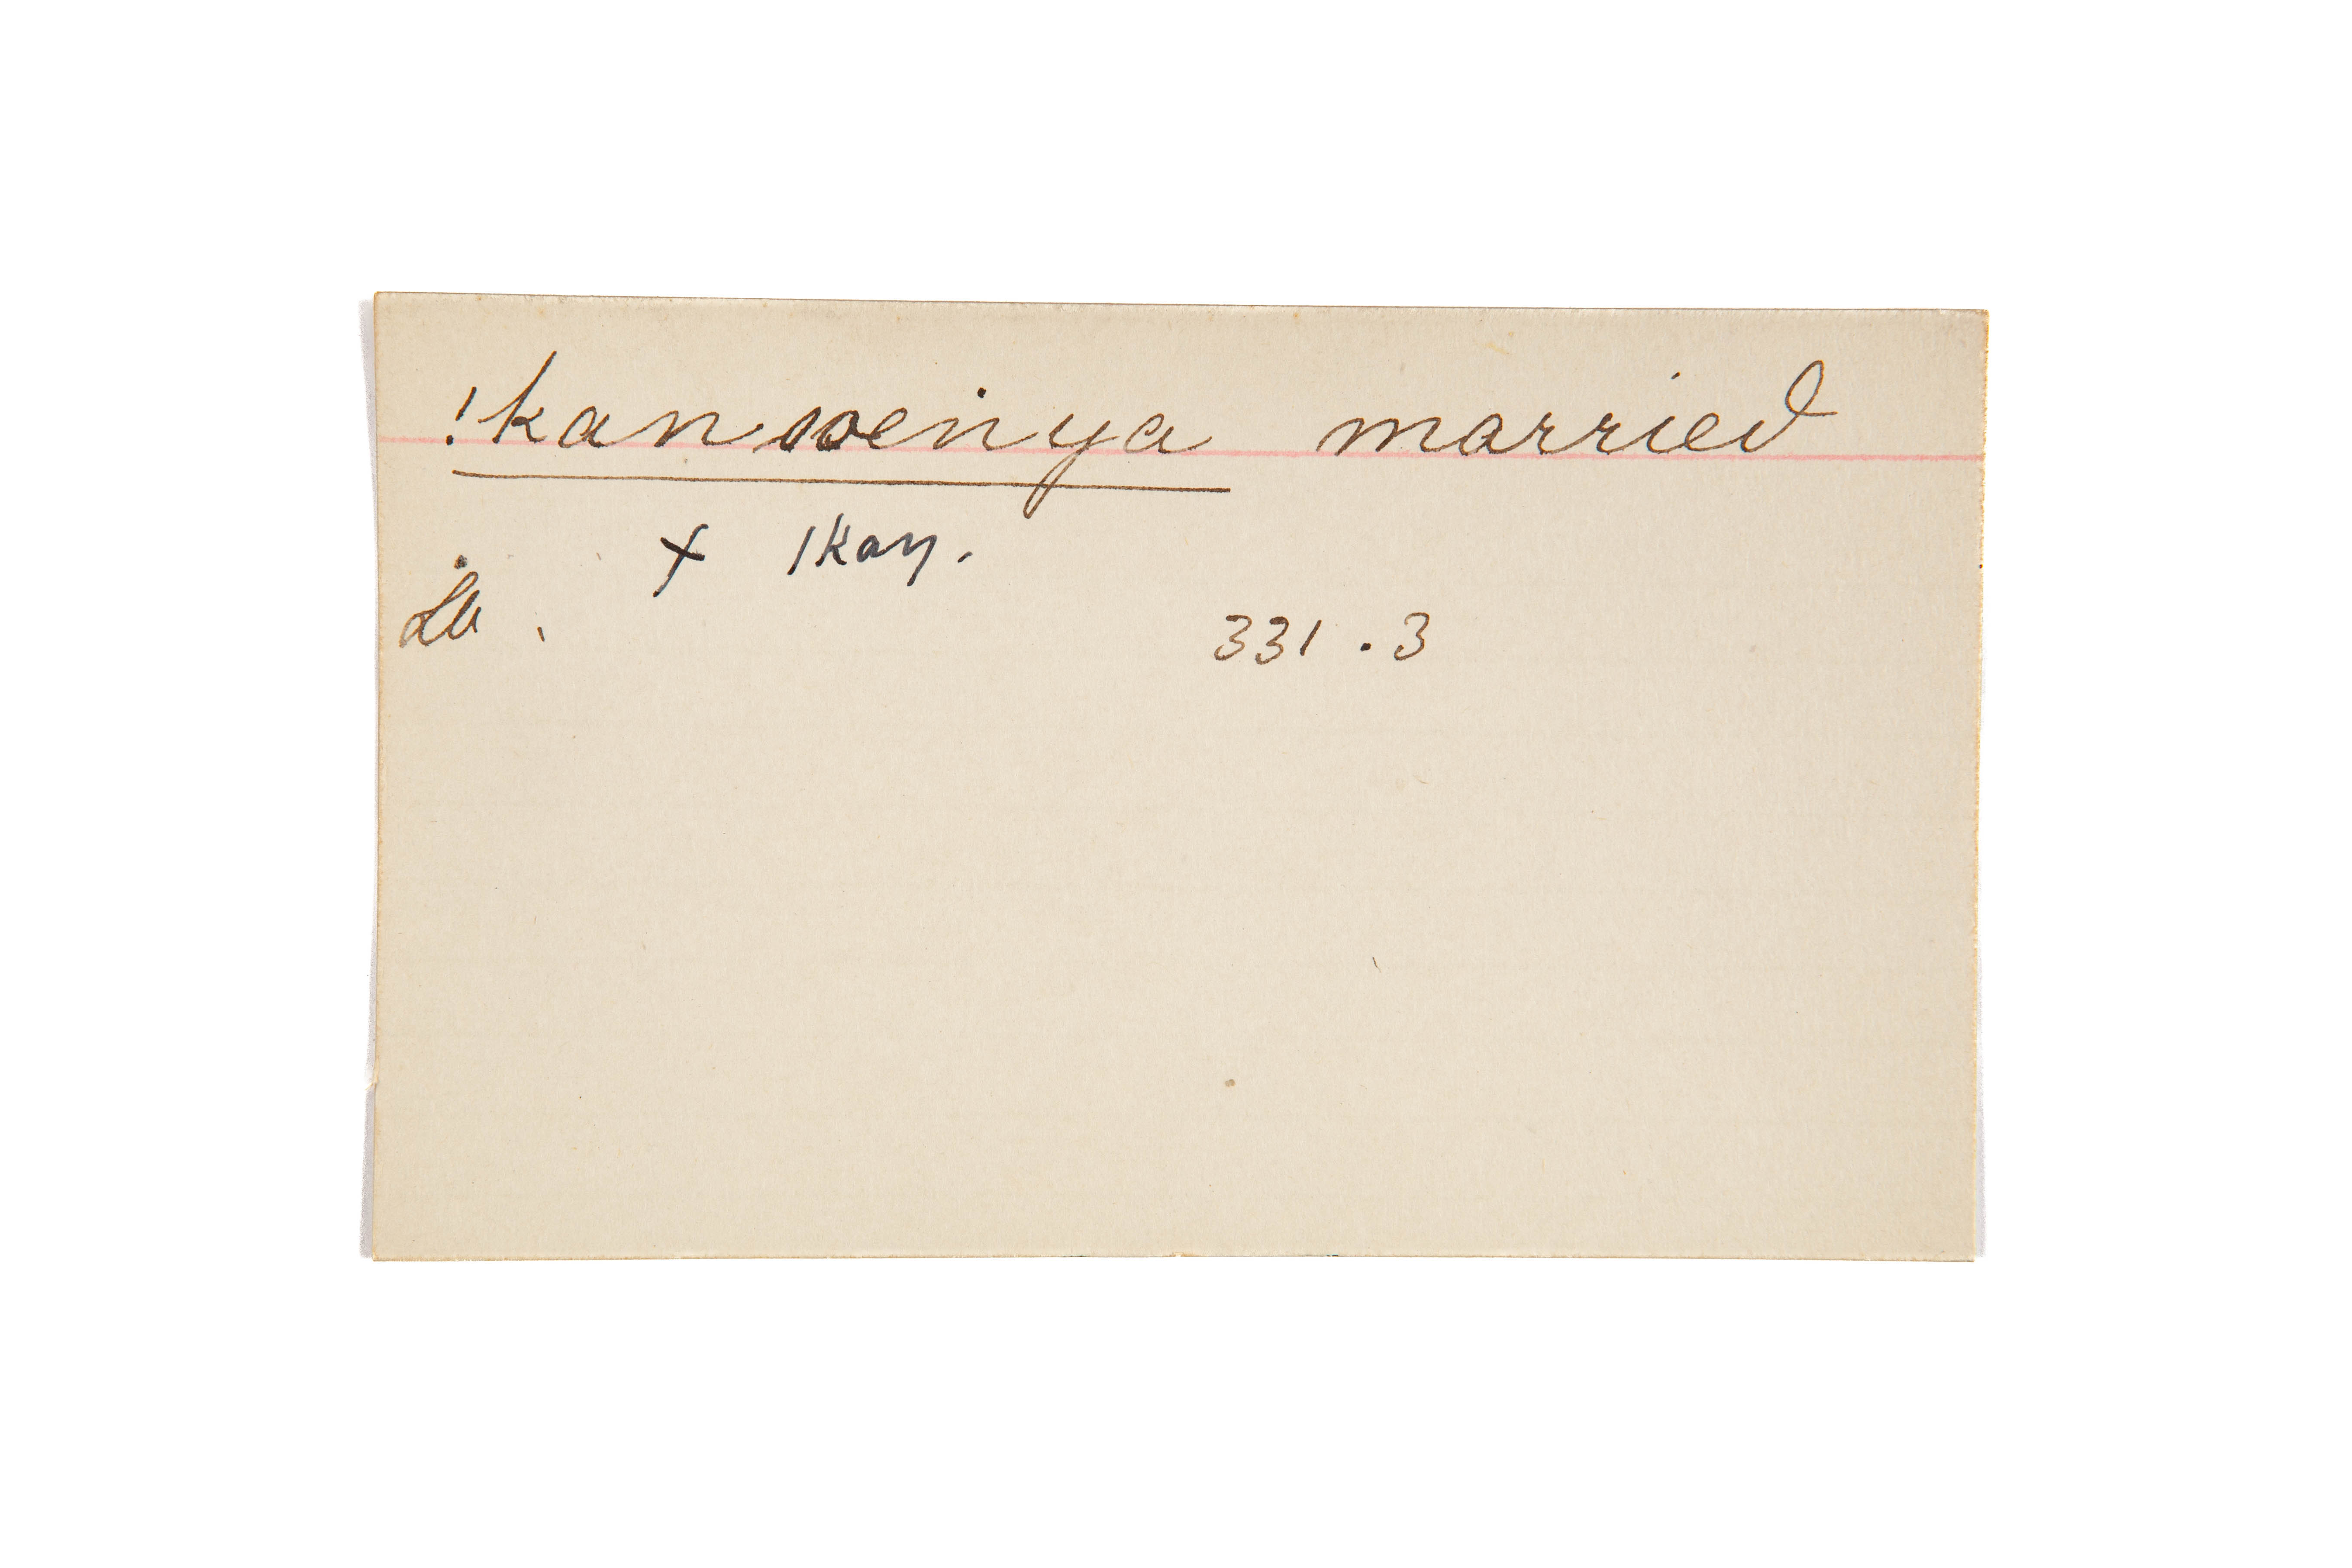 !kanweinya married
x !kaŋ.
331 . 3